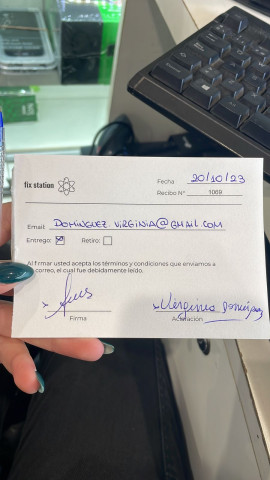 fix station
Fecha 20/10/23
Recibo Nº 1069
Email: DOMINGUEZ.VIRGINIA@GMAIL.COM
Entrego: Retiro:
Al firmar usted acepta los términos y condiciones que enviamos a
correo, el cual fue debidamente leído.
Virginia Dominguez
Firma
Aclaración